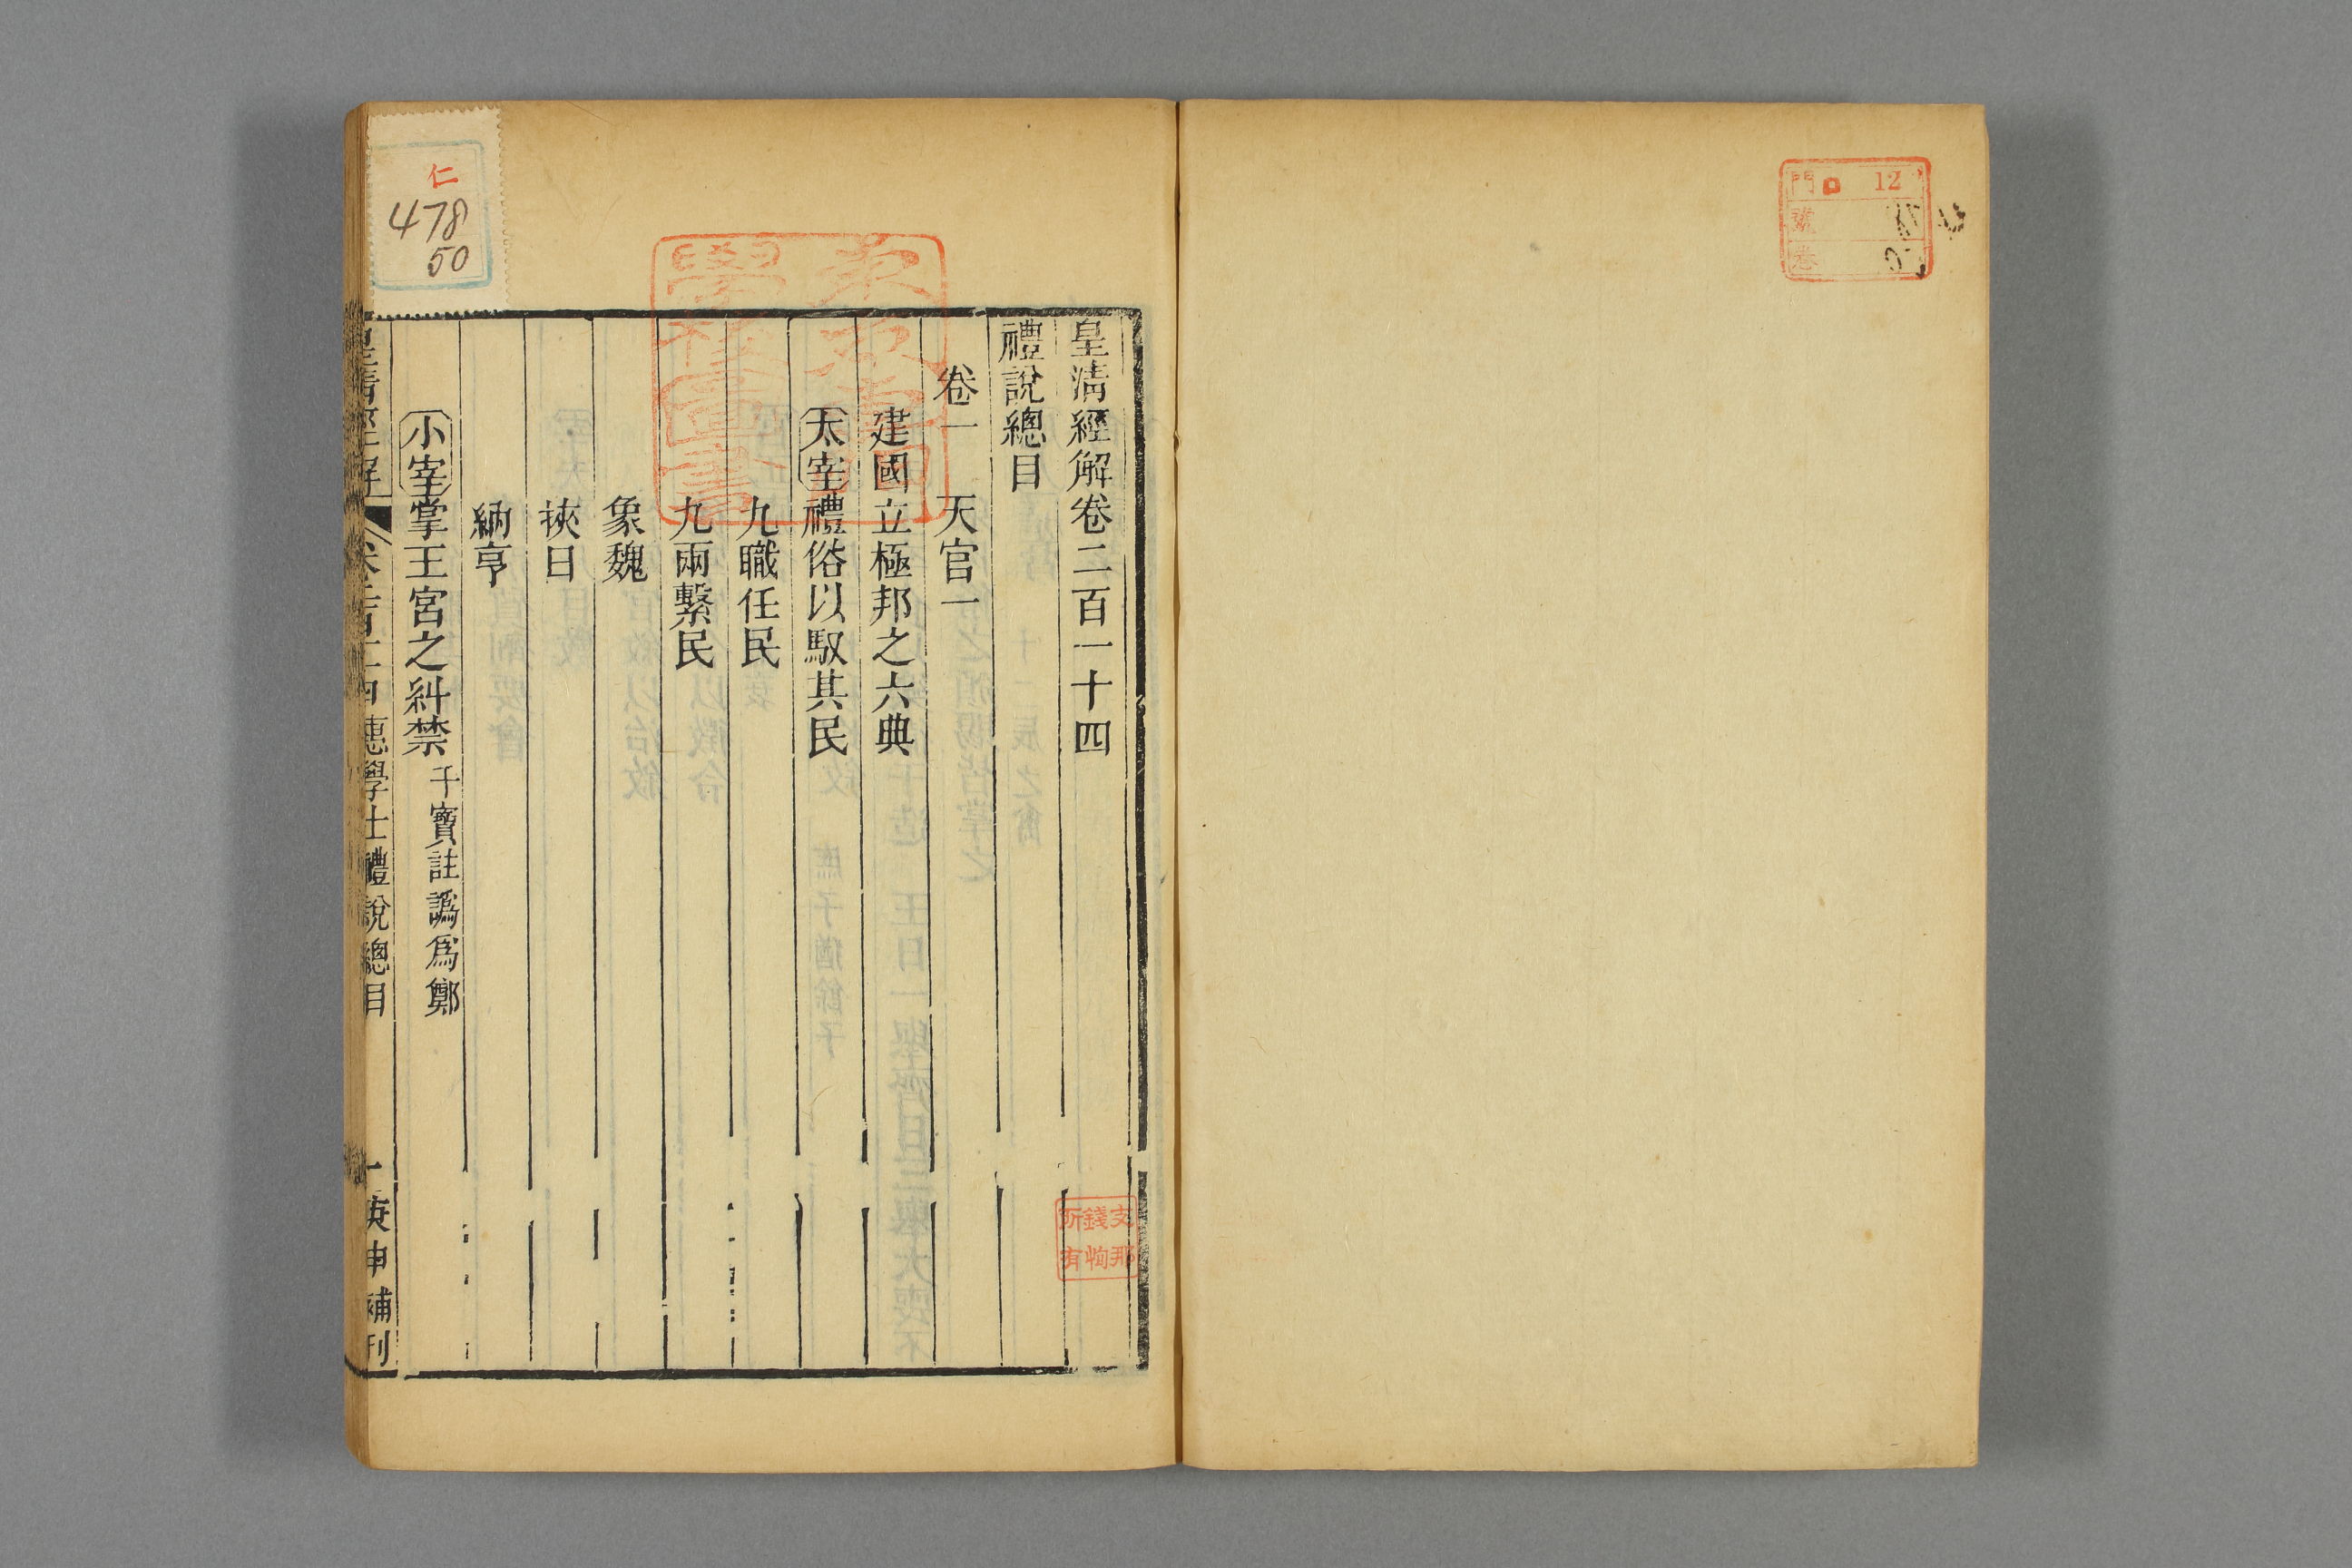 門 12
號
卷
皇清經解卷二百一十四
禮說總目
卷一 天官一
建國立極邦之六典
太宰禮俗以馭其民
九職任民
九兩繫民
象魏
挾日
納亨
小宰掌王宮之糾禁 干寶註譌爲鄭
皇清經解 卷二百十四惠學士禮說總目 一 庚申補刊
支那
錢恂
所有
仁
478
50